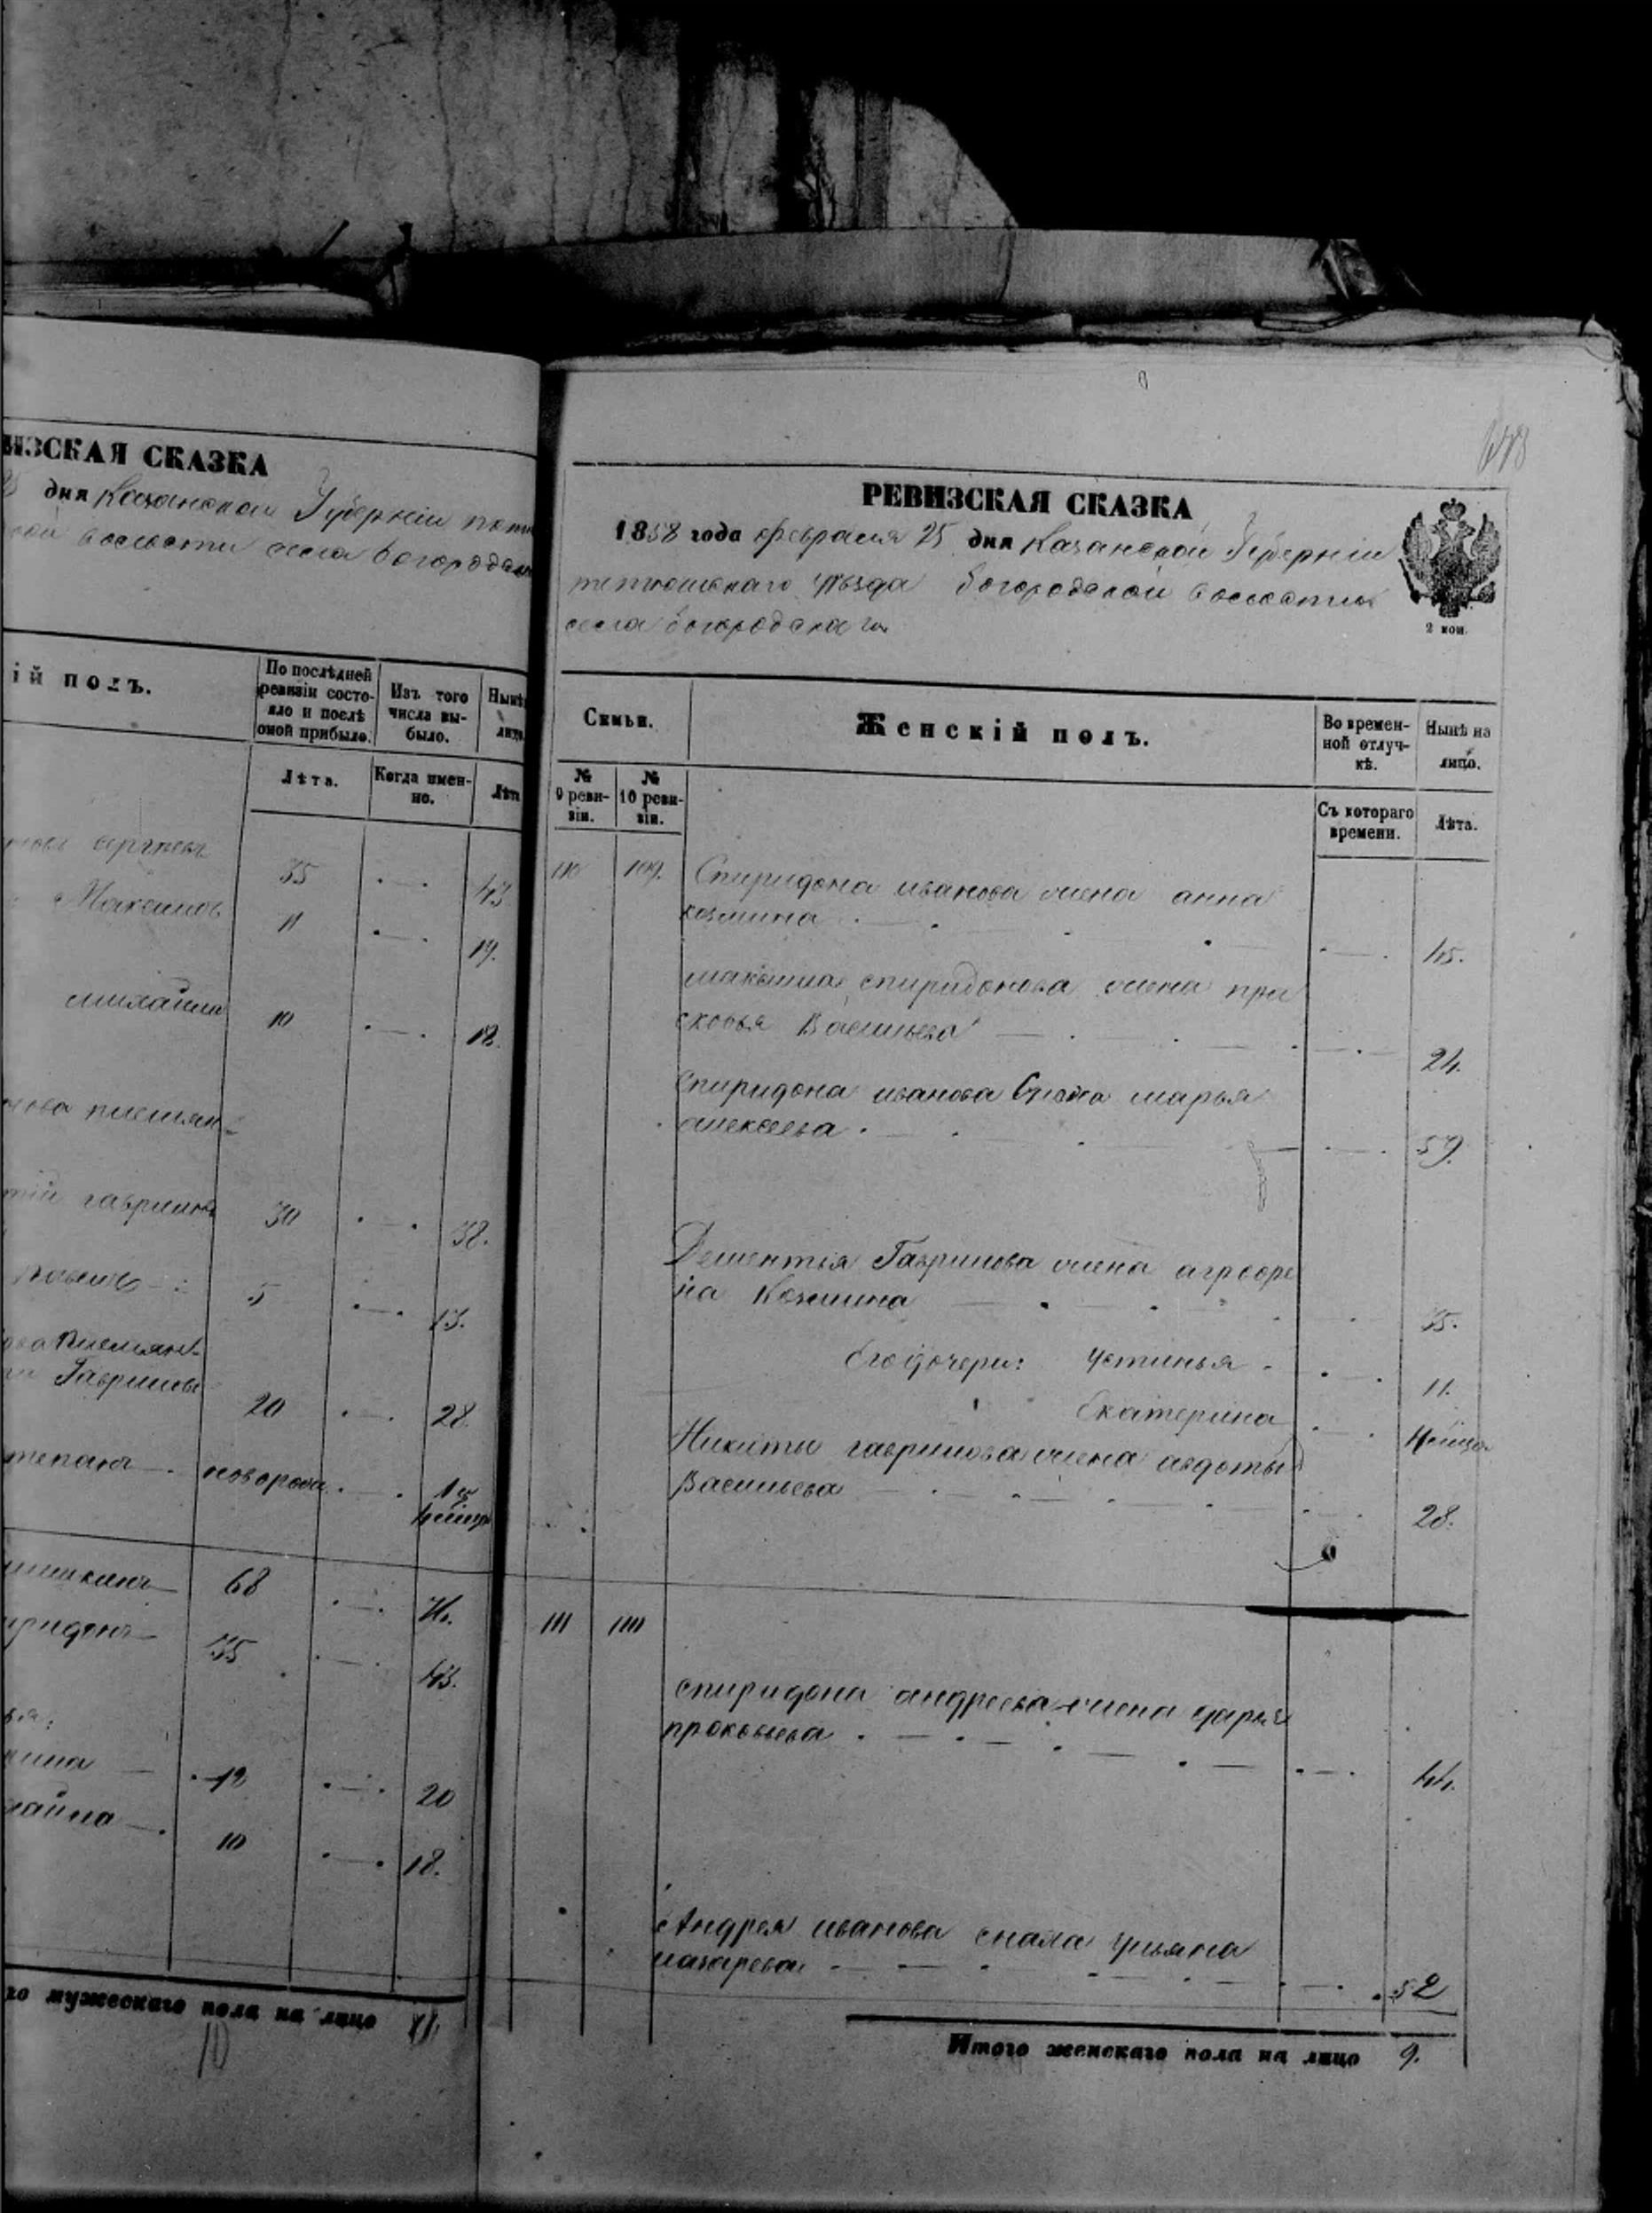 ИЗСКАЯ СКАЗКА
дня Казанской Губерніи
волости села Богородска
ій полъ.
По послѣдней ревизіи состо-
яло и послѣ
оной прибыло.
Изъ того
числа вы-
было.
Нынѣ
лицо
Лѣта.
Когда имен-
но.
Лѣт
Сергѣевъ
35 43
Максимъ
11 19.
михайла
10 18.
племян-
гаврилов
30 38.
5 13.
племян-
Гаврилов
20 28.
степанъ новорожд 1 ½
68
спиридонъ
35 43.
12 20
10 18.
го мужескаго пола на лицо
10
РЕВИЗСКАЯ СКАЗКА
1858 года февраля 25 дня Казанской Губерніи
тетюшскаго уѣзда богородской волости
села богородскаго
2 коп.
Семьи.
Женскій полъ.
Во времен-
ной отлуч-
кѣ.
Нынѣ на
лицо.
№
9 реви-
зіи.
№
10 реви-
зіи.
Съ котораго
времени.
Лѣта.
110 109. Спиридона иванова жена анна
козмина 45.
максима спиридонова жена пра
сковья Васильева 24.
Спиридона иванова марья
алексеева 59.
Дементья Гаврилова жена агрофе
на Козмина 35.
Его дочери: Устинья 11.
Екатерина
Никиты гаврилова жена авдотья
Васильева 28.
111 110
спиридона андреева жена дарья
прокофьева 44.
Андрея иванова сноха ульяна
назарева 52
Итого женскаго пола на лицо 9.